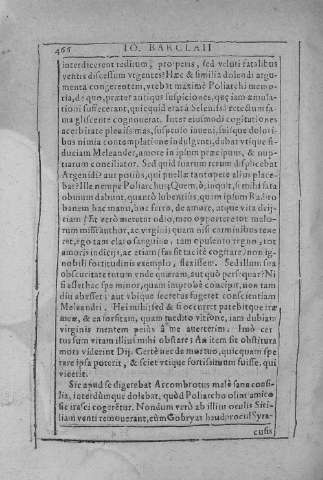 466 IO. BARCLAII
interdiceret reditum, properus, sed veluti fatalibus
ventis discessum vrgentes? Hæc & similia dolendi argu-
menta congerentem, vrebat maximè Poliarchi memo-
ria, de quo, præter antiquas suspiciones, quæ iam æmula-
tioni suffecerant, quicquid erat à Selenissa detectum fa-
ma gliscente cognouerat. Inter eiusmodi cogitationes
acerbitate plenissimas, suspecto iuueni, suisque dolori-
bus nimia contemplatione indulgenti, dubat vtique fi-
duciam Meleander, amore in ipsum præcipuus, & nup-
tiarum conciliator. Sed quid tuarum rerum displicebat
Argenidi? aut potiùs, qui puellæ tantopere alius place-
bat? Ille nempe Poliarchus; Quem, ô, inquit, si mihi fata
obuium dabunt, quantò lubentiùs, quam ipsum Radiro-
banem hac manu, hoc ferro, de amore, atque vita deij-
ciam! Et verò meretur odio, meo opportere tot malo-
rum miss author, ac virginis quam nisi carminibus tene-
ret, ego tam claro sanguine, tam opulento regno, tot
amoris indicijs, ac etiam (fas sit tacitè cogitare) non ig-
nobili fortitudinis exemplo, flexissem. Sed illum sua
obscuritate tutum vnde quæram, aut quò persequar? Ni-
si asset hac spe minor, quam improbè concipit, non tam
diu abesset; aut vbique secretus fugeret conscientiam
Meleandri. Hei mihi! sed & si occurret patebitque iræ
meæ, & ensi fortean, quam tacebo vltione, iam dubiam
virginis mentem peiùs à me auerterim. Imò cer-
tus sum vitam illius mihi obstare: An item sit obstitura
mors viderint Dij. Certè nec de mortuo, quicquam spe-
rare ipsa poterit, & sciet vtique fortissimum fuisse, qui
vicerit.
Sic apud se digerebat Arcombrotus malè sana consi-
lia, interdúmque dolebat, quòd Poliarcho olim amico
sic irasci cogeretur. Nondum verò ab illius oculis Sici-
liam venti remouerant, cùm Gobryas haud procul Syra-
cusis